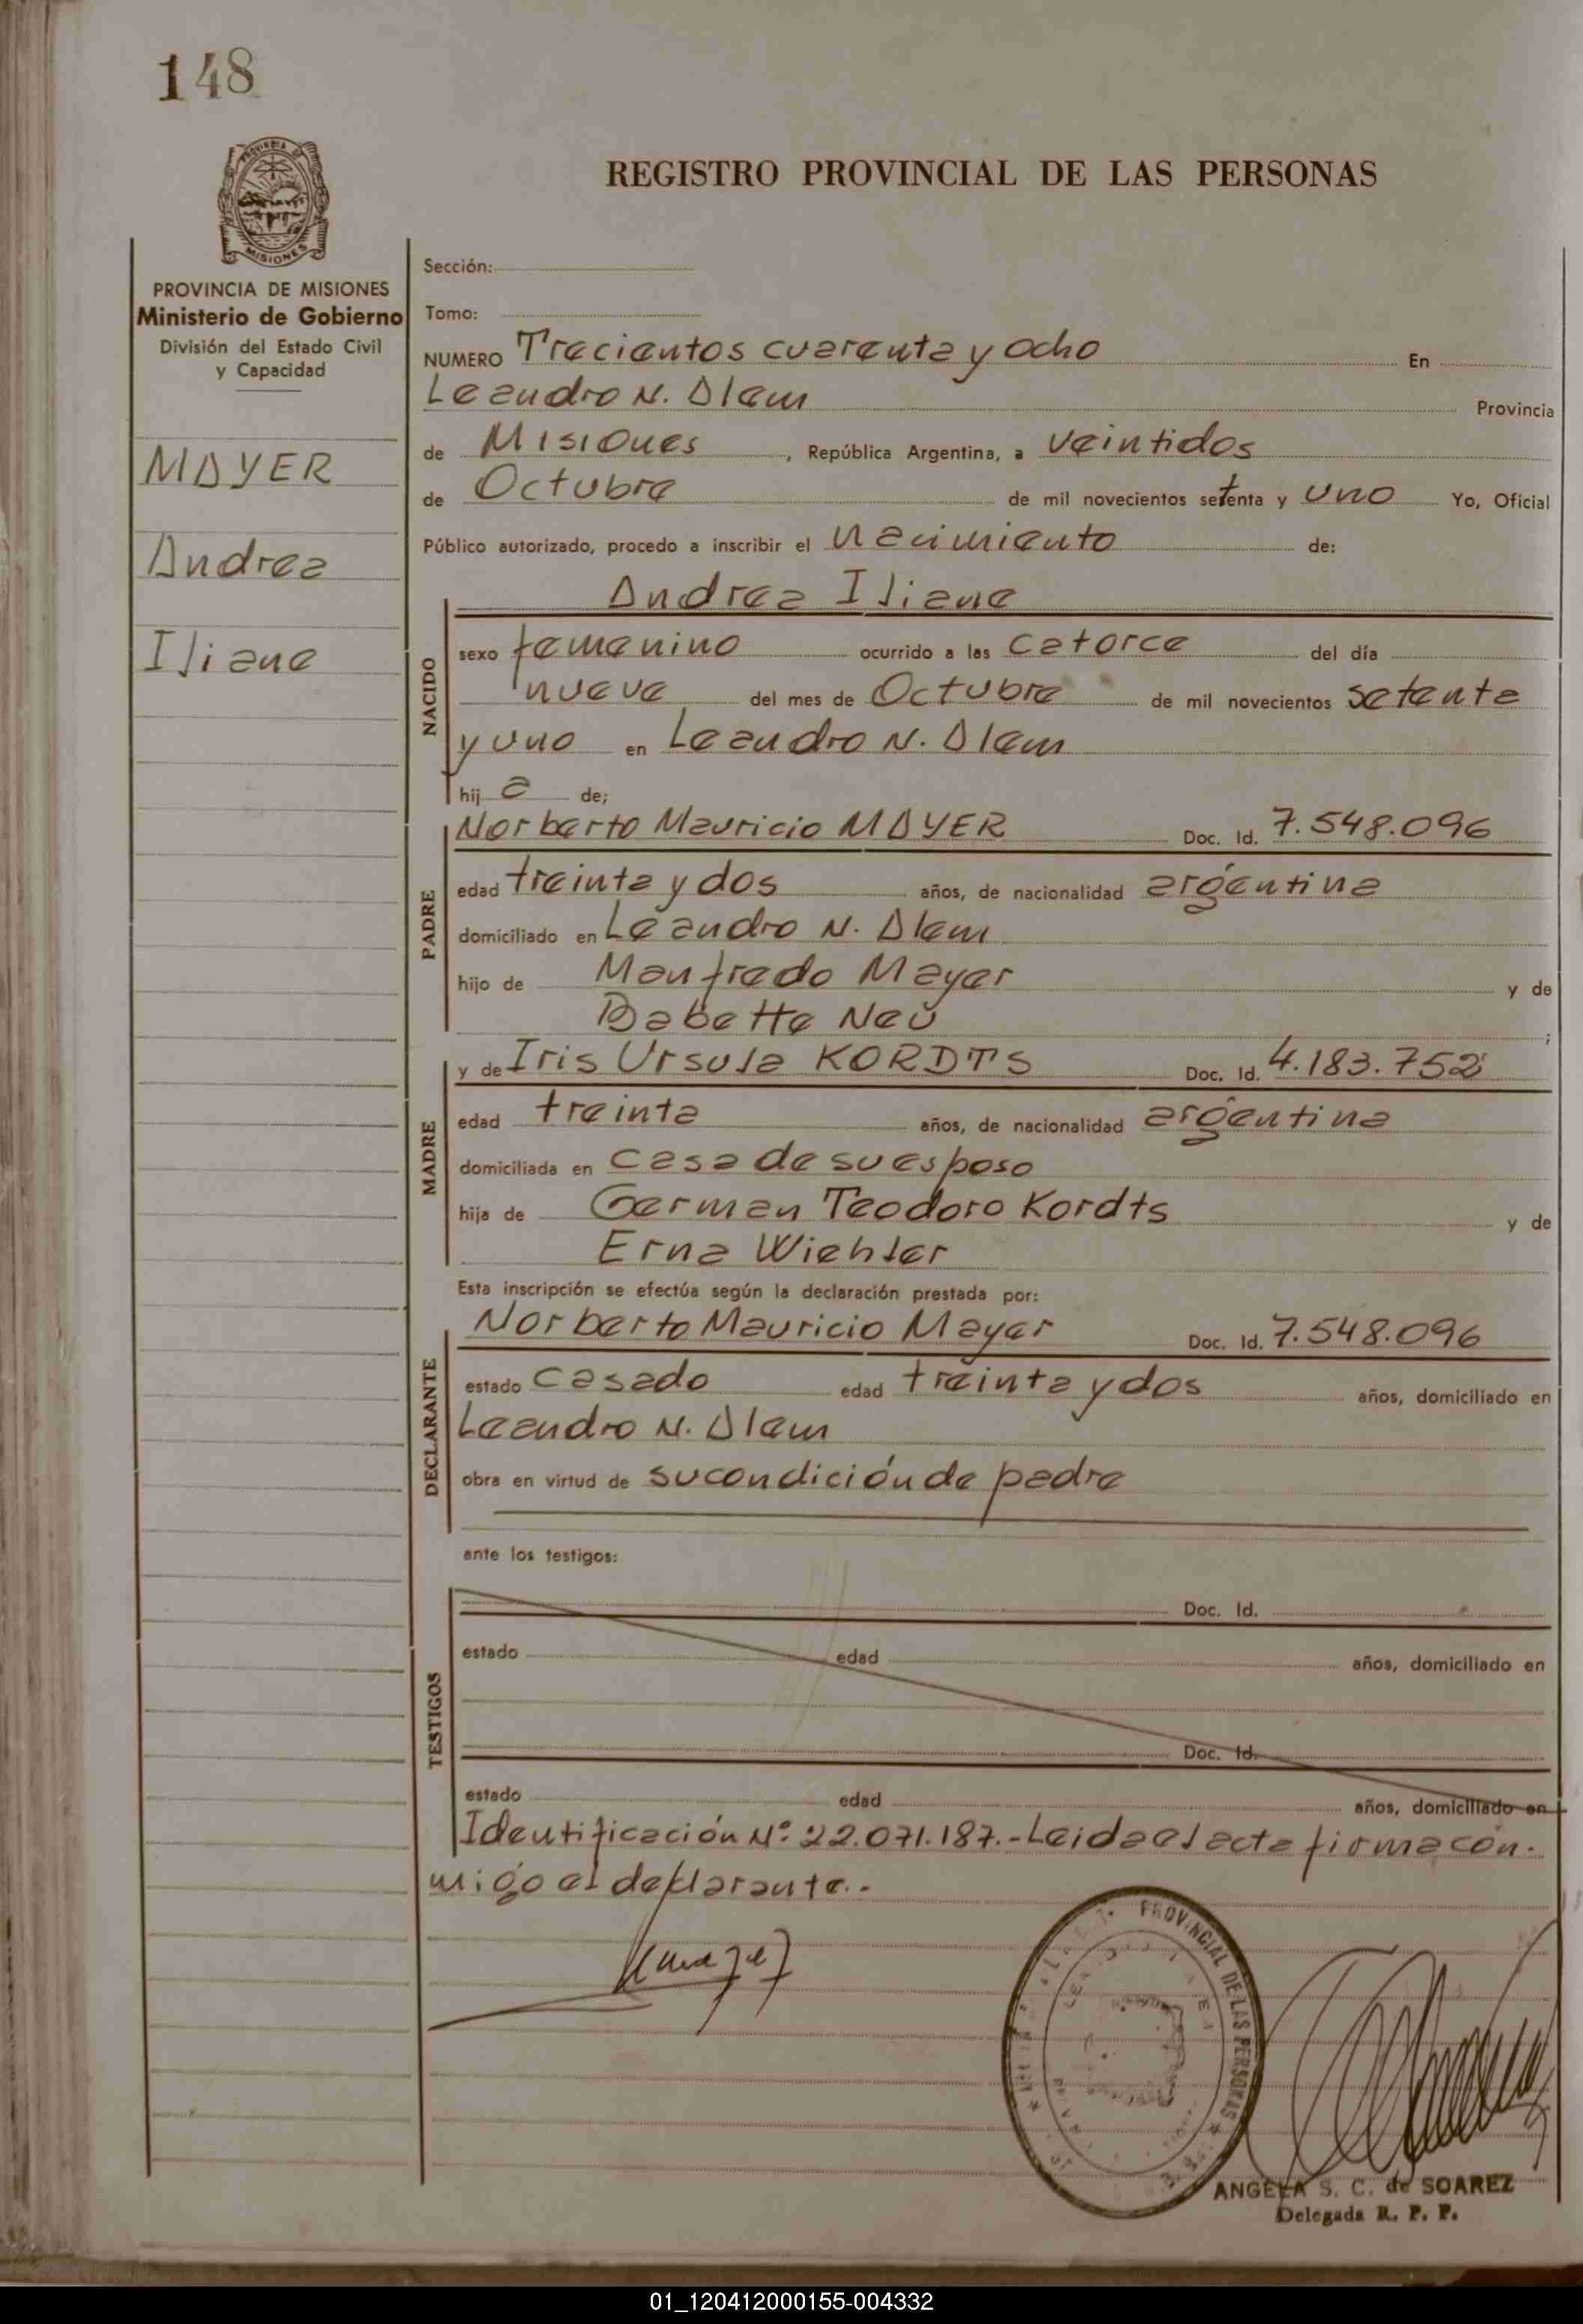 148
PROVINCIA DE
MISIONES
REGISTRO PROVINCIAL DE LAS PERSONAS
PROVINCIA DE MISIONES
Ministerio de Gobierno
División del Estado Civil
y Capacidad
MAYER
Andrea
Iliane
Sección:
Tomo:
NUMERO Trecientos cuarenta y ocho En
Leandro N. Alem Provincia
de Misiones, República Argentina, a veintidos
de Octubre de mil novecientos setenta y uno Yo, Oficial
Público autorizado, procedo a inscribir el nacimiento de:
NACIDO
Andrea Iliane
sexo femenino ocurrido a las catorce del día
nueve del mes de Octubre de mil novecientos setenta
y uno en Leandro N. Alem
hij a de;
PADRE
Norberto Mauricio MAYER Doc. Id. 7.548.096
edad treinta y dos años, de nacionalidad argentina
domiciliado en Leandro N. Alem
hijo de Manfredo Mayer y de
Babette Neü ;
MADRE
y de Iris Ursula KORDTS Doc. Id. 4.183.752
edad treinta años, de nacionalidad argentina
domiciliada en casa de su esposo
hija de German Teodoro Kordts y de
Erna Wiehler
Esta inscripción se efectúa según la declaración prestada por:
DECLARANTE
Norberto Mauricio Mayer Doc. Id. 7.548.096
estado casado edad treinta y dos años, domiciliado en
Leandro N. Alem
obra en virtud de su condición de padre
ante los testigos:
TESTIGOS
Doc. Id.
estado edad años, domiciliado en
Doc. Id.
estado edad años, domiciliado en
Identificación Nº 22.071.187.- Leida el acta firma con-
migo el declarante.-
PROVINCIAL DE LAS PERSONAS
ANGELA S. C. de SOAREZ
Delegada R. P. P.
01_120412000155-004332